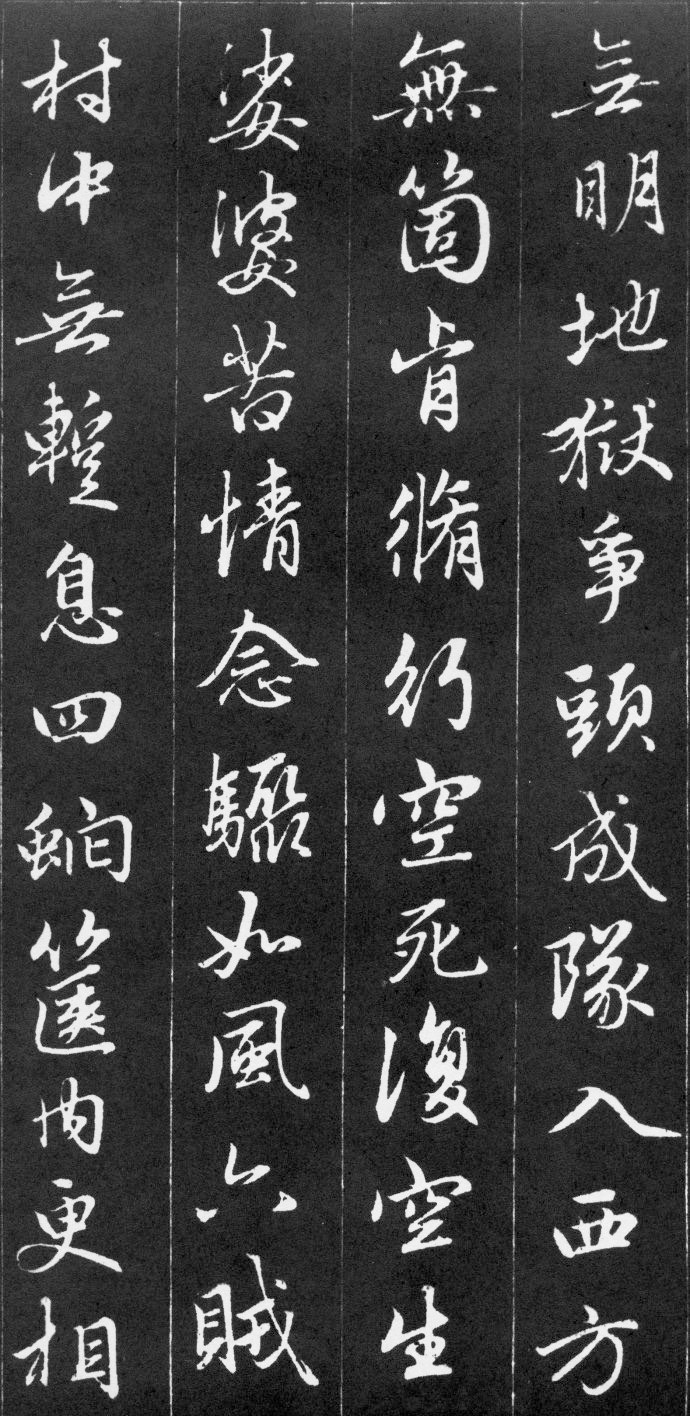 無明地獄爭頭成隊入西方
無箇肯脩行空死復空生
娑婆苦情念驟如風六賊
村中無蹔息四蛇篋内更相